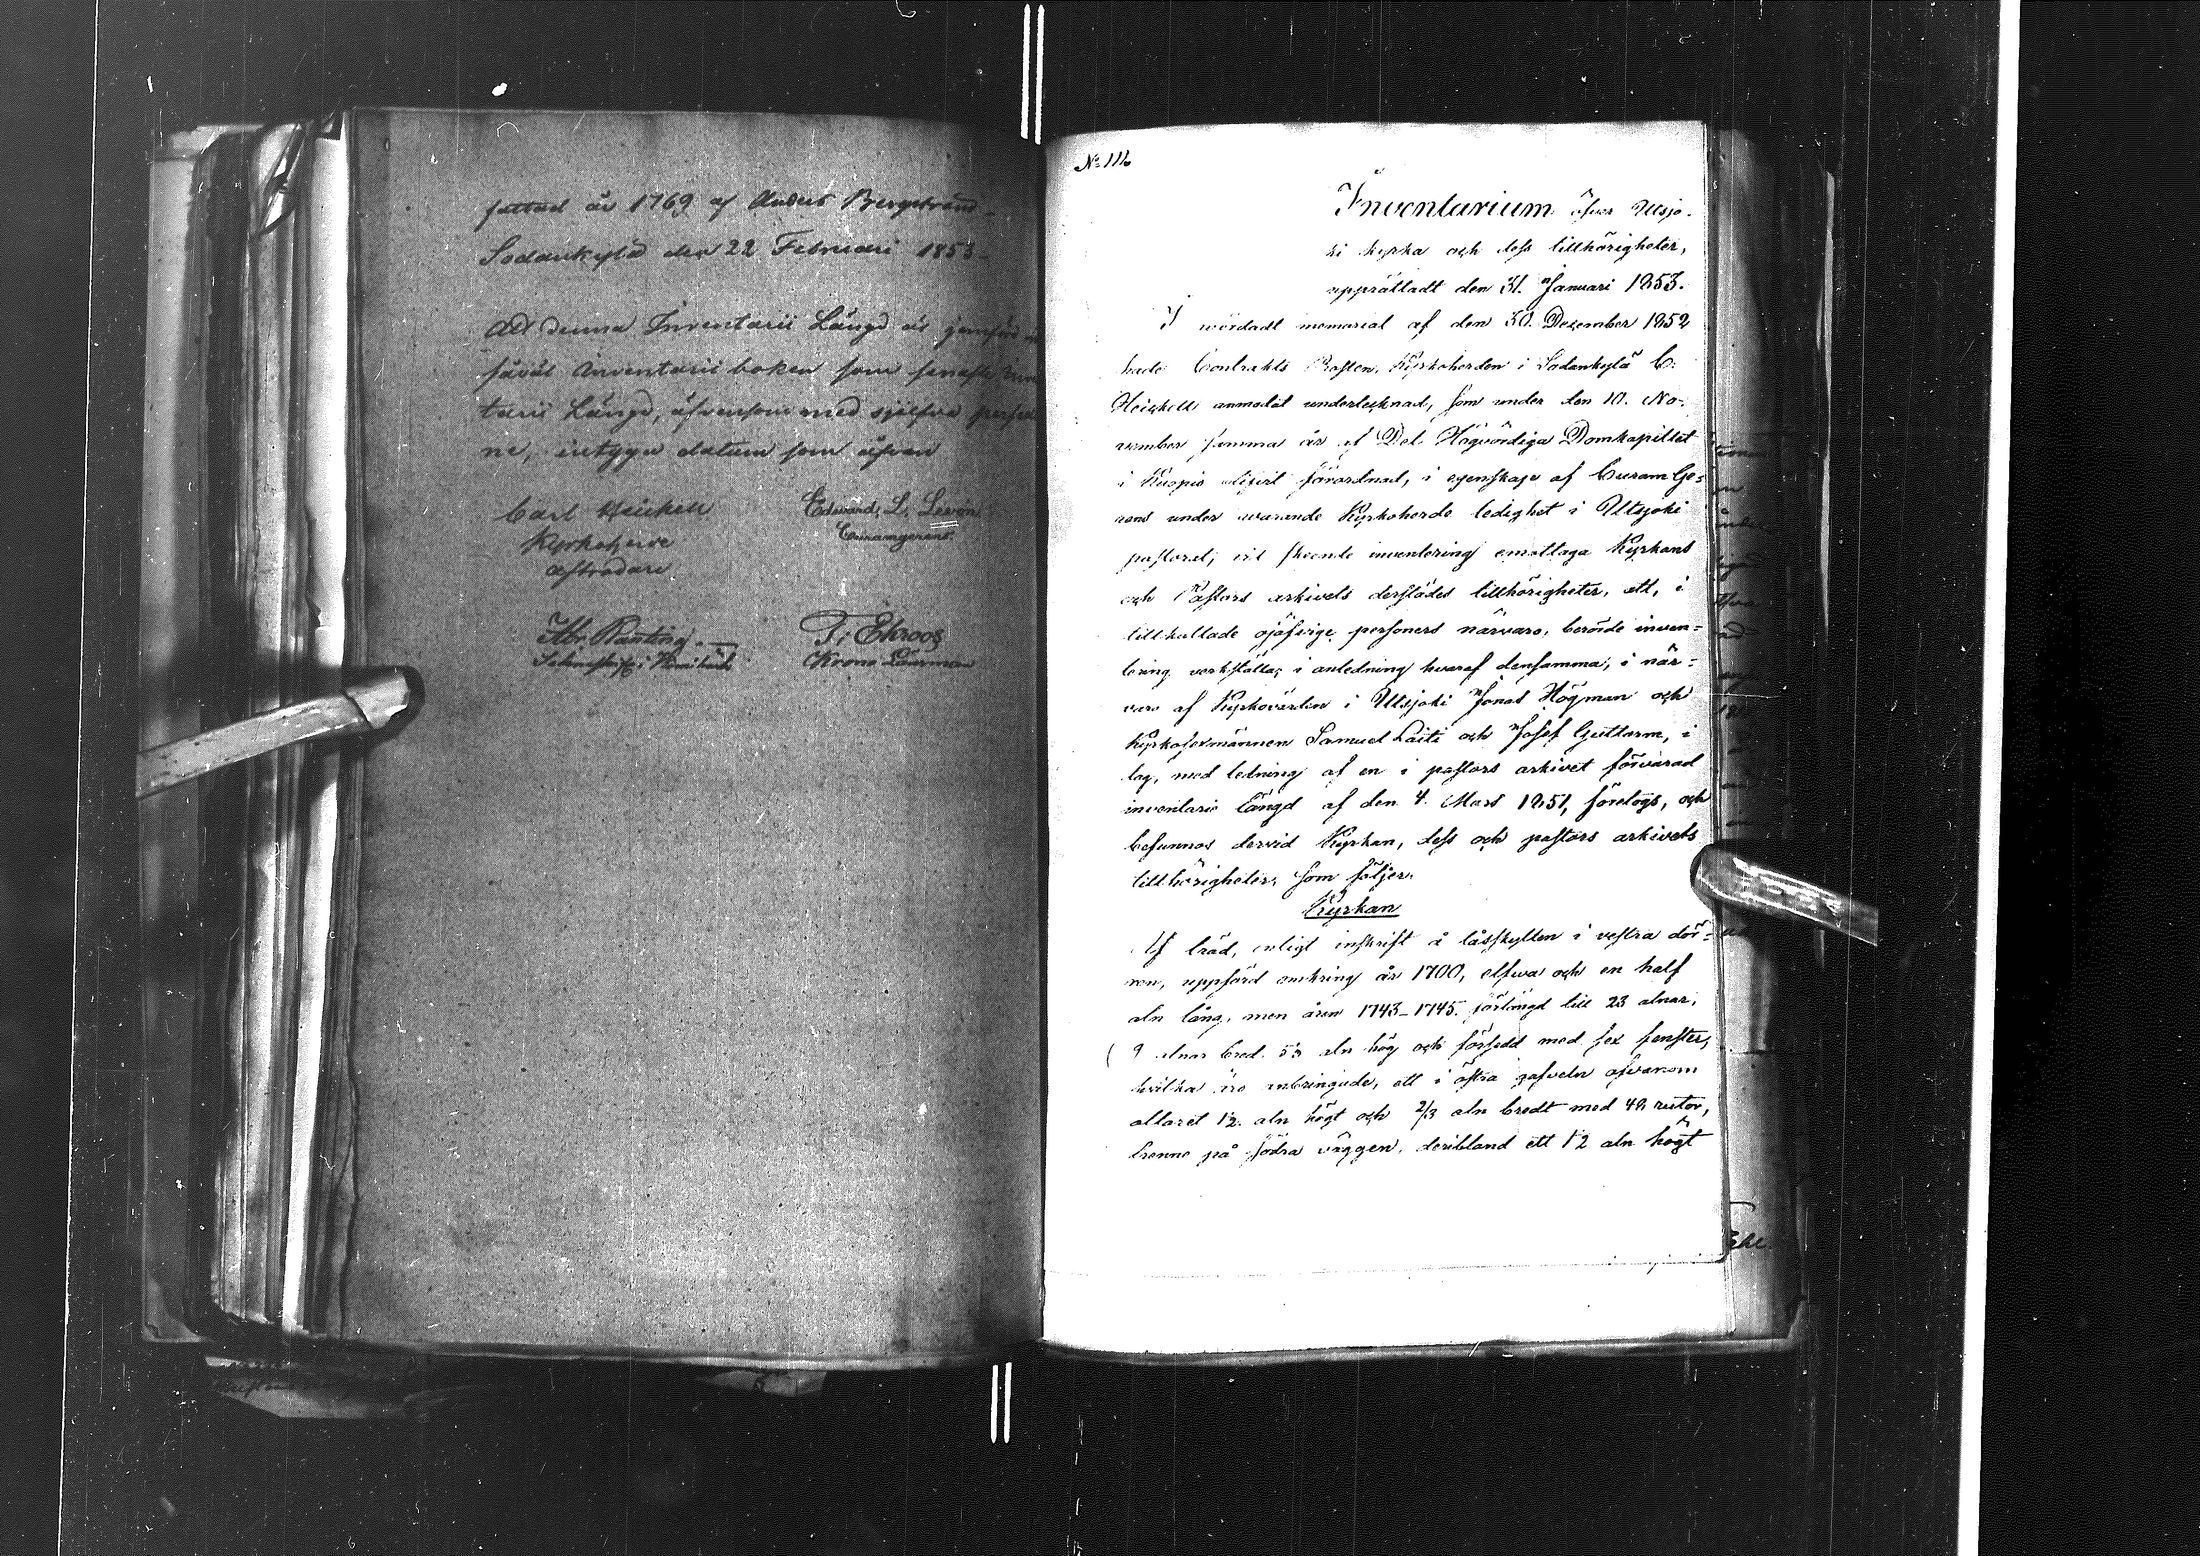 fattad år 1769 af Anders Bergstrand
Sodankylä den 22 Februari 1853
Att denna Inventarii Längd är jemförd
såväl Inventarii boken som senaste
tarii Längd, äfvensom med sjelfva
ne, intyga datum som ofvan
Carl Heickell
Kyrkoherde
afträdare
Edward. L. Levón
Curamgerent
T: Ekroos
Krono Länsman
No 116
Inventarium öfver Utsjo-
ki kyrka och dess tillhörigheter,
upprättadt den 31. Januari 1853.
I wördadt memorial af den 30. December 1852
hade Contrakts Prosten, Kyrkoherden i Sodankylä C.
Heickell anmodat undertecknad, som under den 10. No-
vember samma år af Det Högvördiga Domkapitlet
i Kuopio blifvit förordnad, i egenskap af Curam Ge-
rens under warande Kyrkoherde ledighet i Utsjoki
pastorat, vid skeende inventering emottaga Kyrkans
och Pastors arkivets derstädes tillhörigheter, att, i
tillkallade ojäfvige personers närvaro, berörde inven=
tering verkställa; i anledning hvaraf densamma, i när=
varo af Kyrkovärden i Utsjoki Jonas Högman och
Kyrkosexmännen Samuel Laiti och Josef Guttarm, i
dag, med ledning af en i pastors arkivet förvarad
inventarie längd af den 4. Mars 1851, företogs, och
befunnos dervid Kyrkan, dess och pastors arkivets
tillhörigheter, som följer.
Kyrkan
Af träd, enligt inskrift å låsskylten i vestra dör=
ren, uppförd omkring år 1700, elfwa och en half
aln lång, men åren 1743-1745. förlängd till 23 alnar,
9 alnar bred. aln hög och försedd med sex fenster,
hvilka äro anbringade, ett i östra gafveln ofvanom
altaret 1½ aln högt och 2/3 aln bredt med 48 rutor,
trenne på södra väggen, deribland ett 1½ aln högt